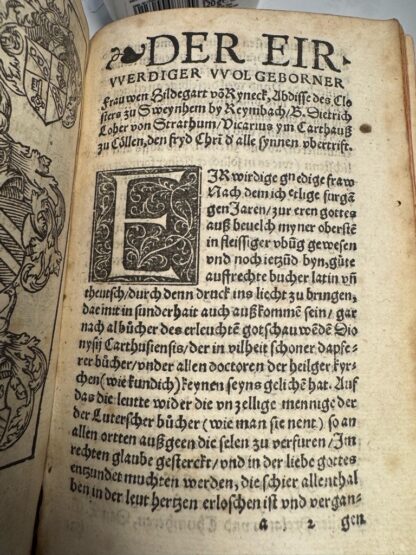 DER EIR
VVERDIGER VVOLGEBORNER
Frauwen Hildegart võ Ryneck, Abdisse des Clo
sters zu Sweynhem by Reymbach/ B. Dietrich
Loher von Strathum/ Vicarius ym Carthauß
zu Cöllen, den fryd Chri d' alle synnen vbertrift.
EIR wirdige gnedige fraw
Nach dem ich etlige furgã
gen Jaren/ zur eren gottes
auß beuelch myner obersten
in fleissiger vbũg gewesen
und noch ietzũd byn, gute
auffrechte bucher latin vñ
theutsch/ durch denn druck ins liecht zu bringen,
dae mit in sunderhait auch außkommẽ sein/ gar
nach al bücher des erleuchtẽ gotschauwẽdẽ Dio
nysij Carthusiensis/ der in vilheit schoner dapfe-
rer bücher/ vnder allen doctoren der heilger kyr-
chen (wie kundich) keynen seyns gelichẽ hat. Auf
das die leutte wider die vnzellige mennige der
der Luterscher bücher (wie man sie nent) so an
allen ortten außgeen die selen zu verfuren/ Im
rechten glaube gesterckt/ vnd in der liebe gottes
entzundet muchten werden, die schier allenthal
ben in der leut hertzen erloschen ist vnd vergan-
a 2 gen